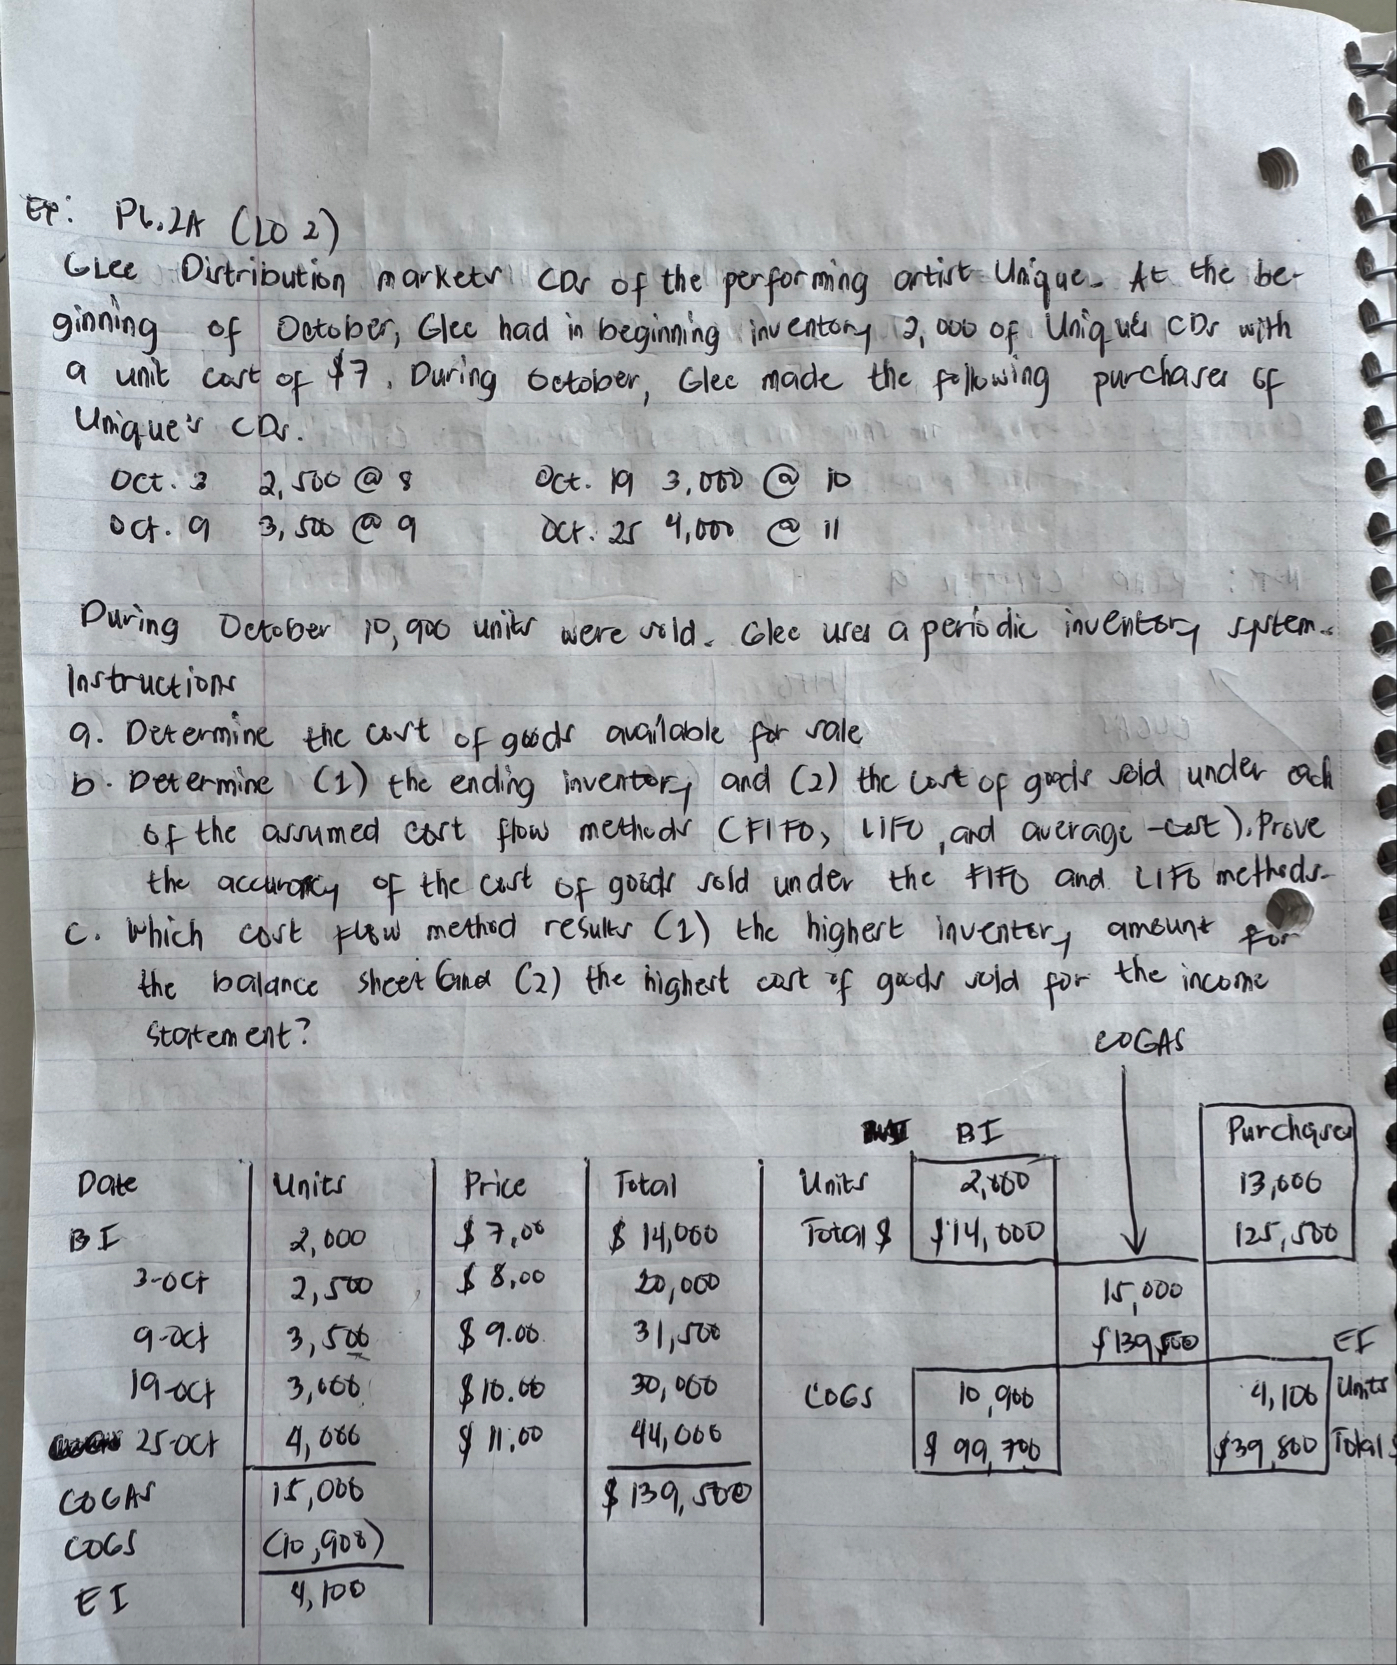 Ex: P6.2A (LO 2)
Glee Distribution markets CDs of the performing artist Unique. At the be-
ginning of October, Glee had in beginning inventory 2,000 of Unique's CDs with
a unit cost of $7. During October, Glee made the following purchases of
Unique's CDs.
Oct. 3 2,500 @ 8 Oct. 19 3,000 @ 10
Oct. 9 3,500 @ 9 Oct. 25 4,000 @ 11
During October 10,900 units were sold. Glee uses a periodic inventory system.
Instructions
a. Determine the cost of goods available for sale
b. Determine (1) the ending inventory and (2) the cost of goods sold under each
of the assumed cost flow methods (FIFO, LIFO, and average-cost). Prove
the accuracy of the cost of goods sold under the FIFO and LIFO methods.
c. Which cost flow method results (1) the highest inventory amount for
the balance sheet and (2) the highest cost of goods sold for the income
statement?
COGAS
BI Purchases
Date Units Price Total Units 2,000 13,000
BI 2,000 $7.00 $14,000 Total $ $14,000 125,500
3-Oct 2,500 $8.00 20,000 15,000
9-Oct 3,500 $9.00 31,500 $139,500 EI
19-Oct 3,000 $10.00 30,000 COGS 10,900 4,100 Units
25-Oct 4,000 $11.00 44,000 $99,700 $39,800 Total $
COGAS 15,000 $139,500
COGS (10,900)
EI 4,100